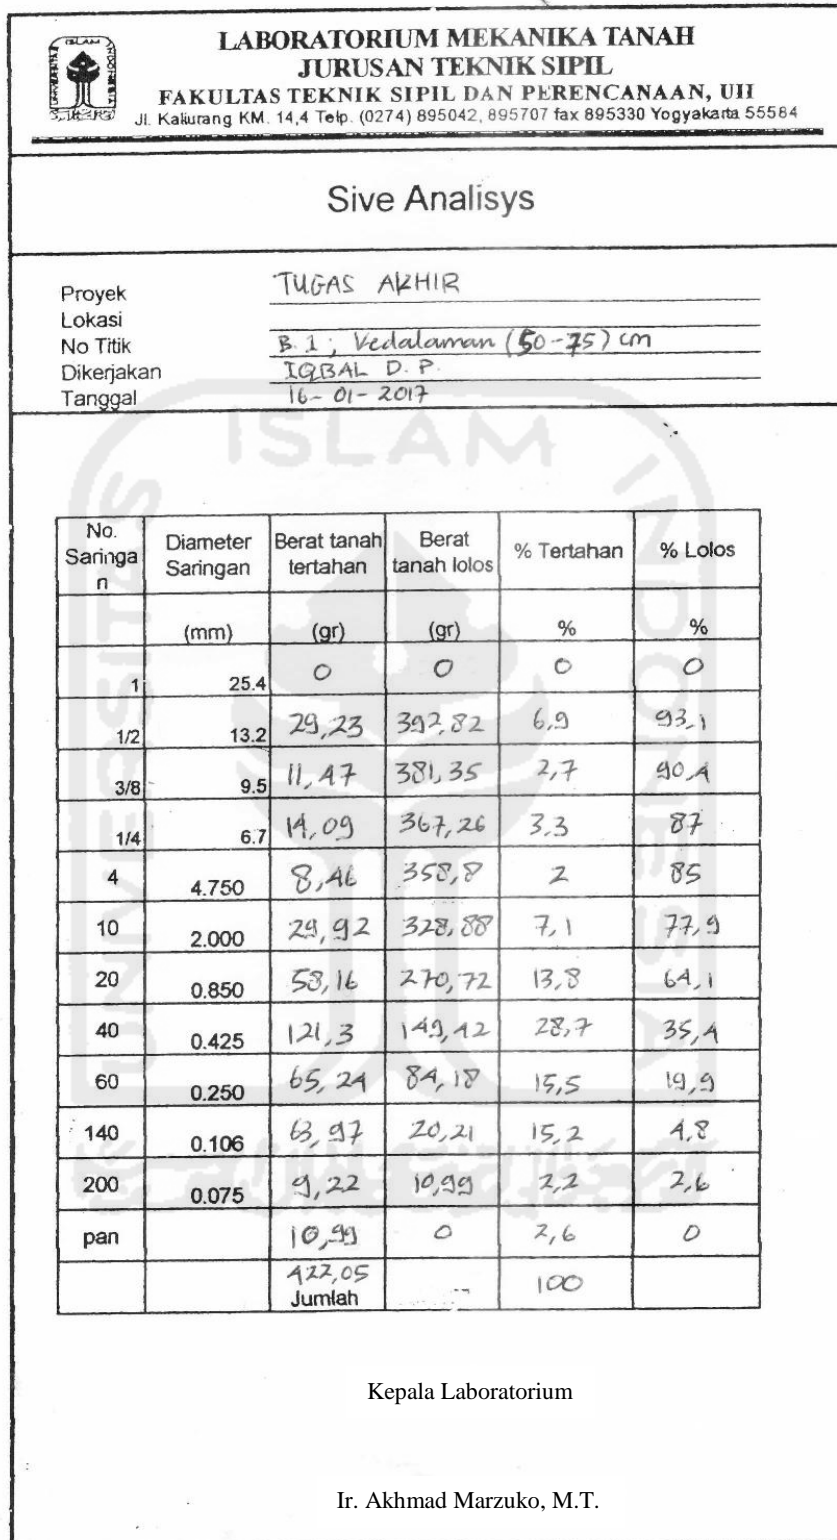 LABORATORIUM MEKANIKA TANAH
JURUSAN TEKNIK SIPIL
FAKULTAS TEKNIK SIPIL DAN PERENCANAAN, UII
Jl. Kaliurang KM. 14,4 Telp. (0274) 895042, 895707 fax 895330 Yogyakarta 55584
Sive Analisys
Proyek TUGAS AKHIR
Lokasi
No Titik B.1 ; Kedalaman (50-75) cm
Dikerjakan IQBAL D. P.
Tanggal 16-01-2017
No. Saringan Diameter Saringan Berat tanah tertahan Berat tanah lolos % Tertahan % Lolos
(mm) (gr) (gr) % %
1 25.4 0 0 0 0
1/2 13.2 29,23 392,82 6,9 93,1
3/8 9.5 11,47 381,35 2,7 90,4
1/4 6.7 14,09 367,26 3.3 87
4 4.750 8,46 358,8 2 85
10 2.000 29,92 328,88 7,1 77,9
20 0.850 58,16 270,72 13,8 64,1
40 0.425 121,3 149,42 28,7 35,4
60 0.250 65,24 84,18 15,5 19,9
140 0.106 63,97 20,21 15,2 4,8
200 0.075 9,22 10,99 2,2 2,6
pan 10,99 0 2,6 0
422,05 100
Jumlah
Kepala Laboratorium
Ir. Akhmad Marzuko, M.T.
ISLAM
UNIVERSITAS
INDONESIA